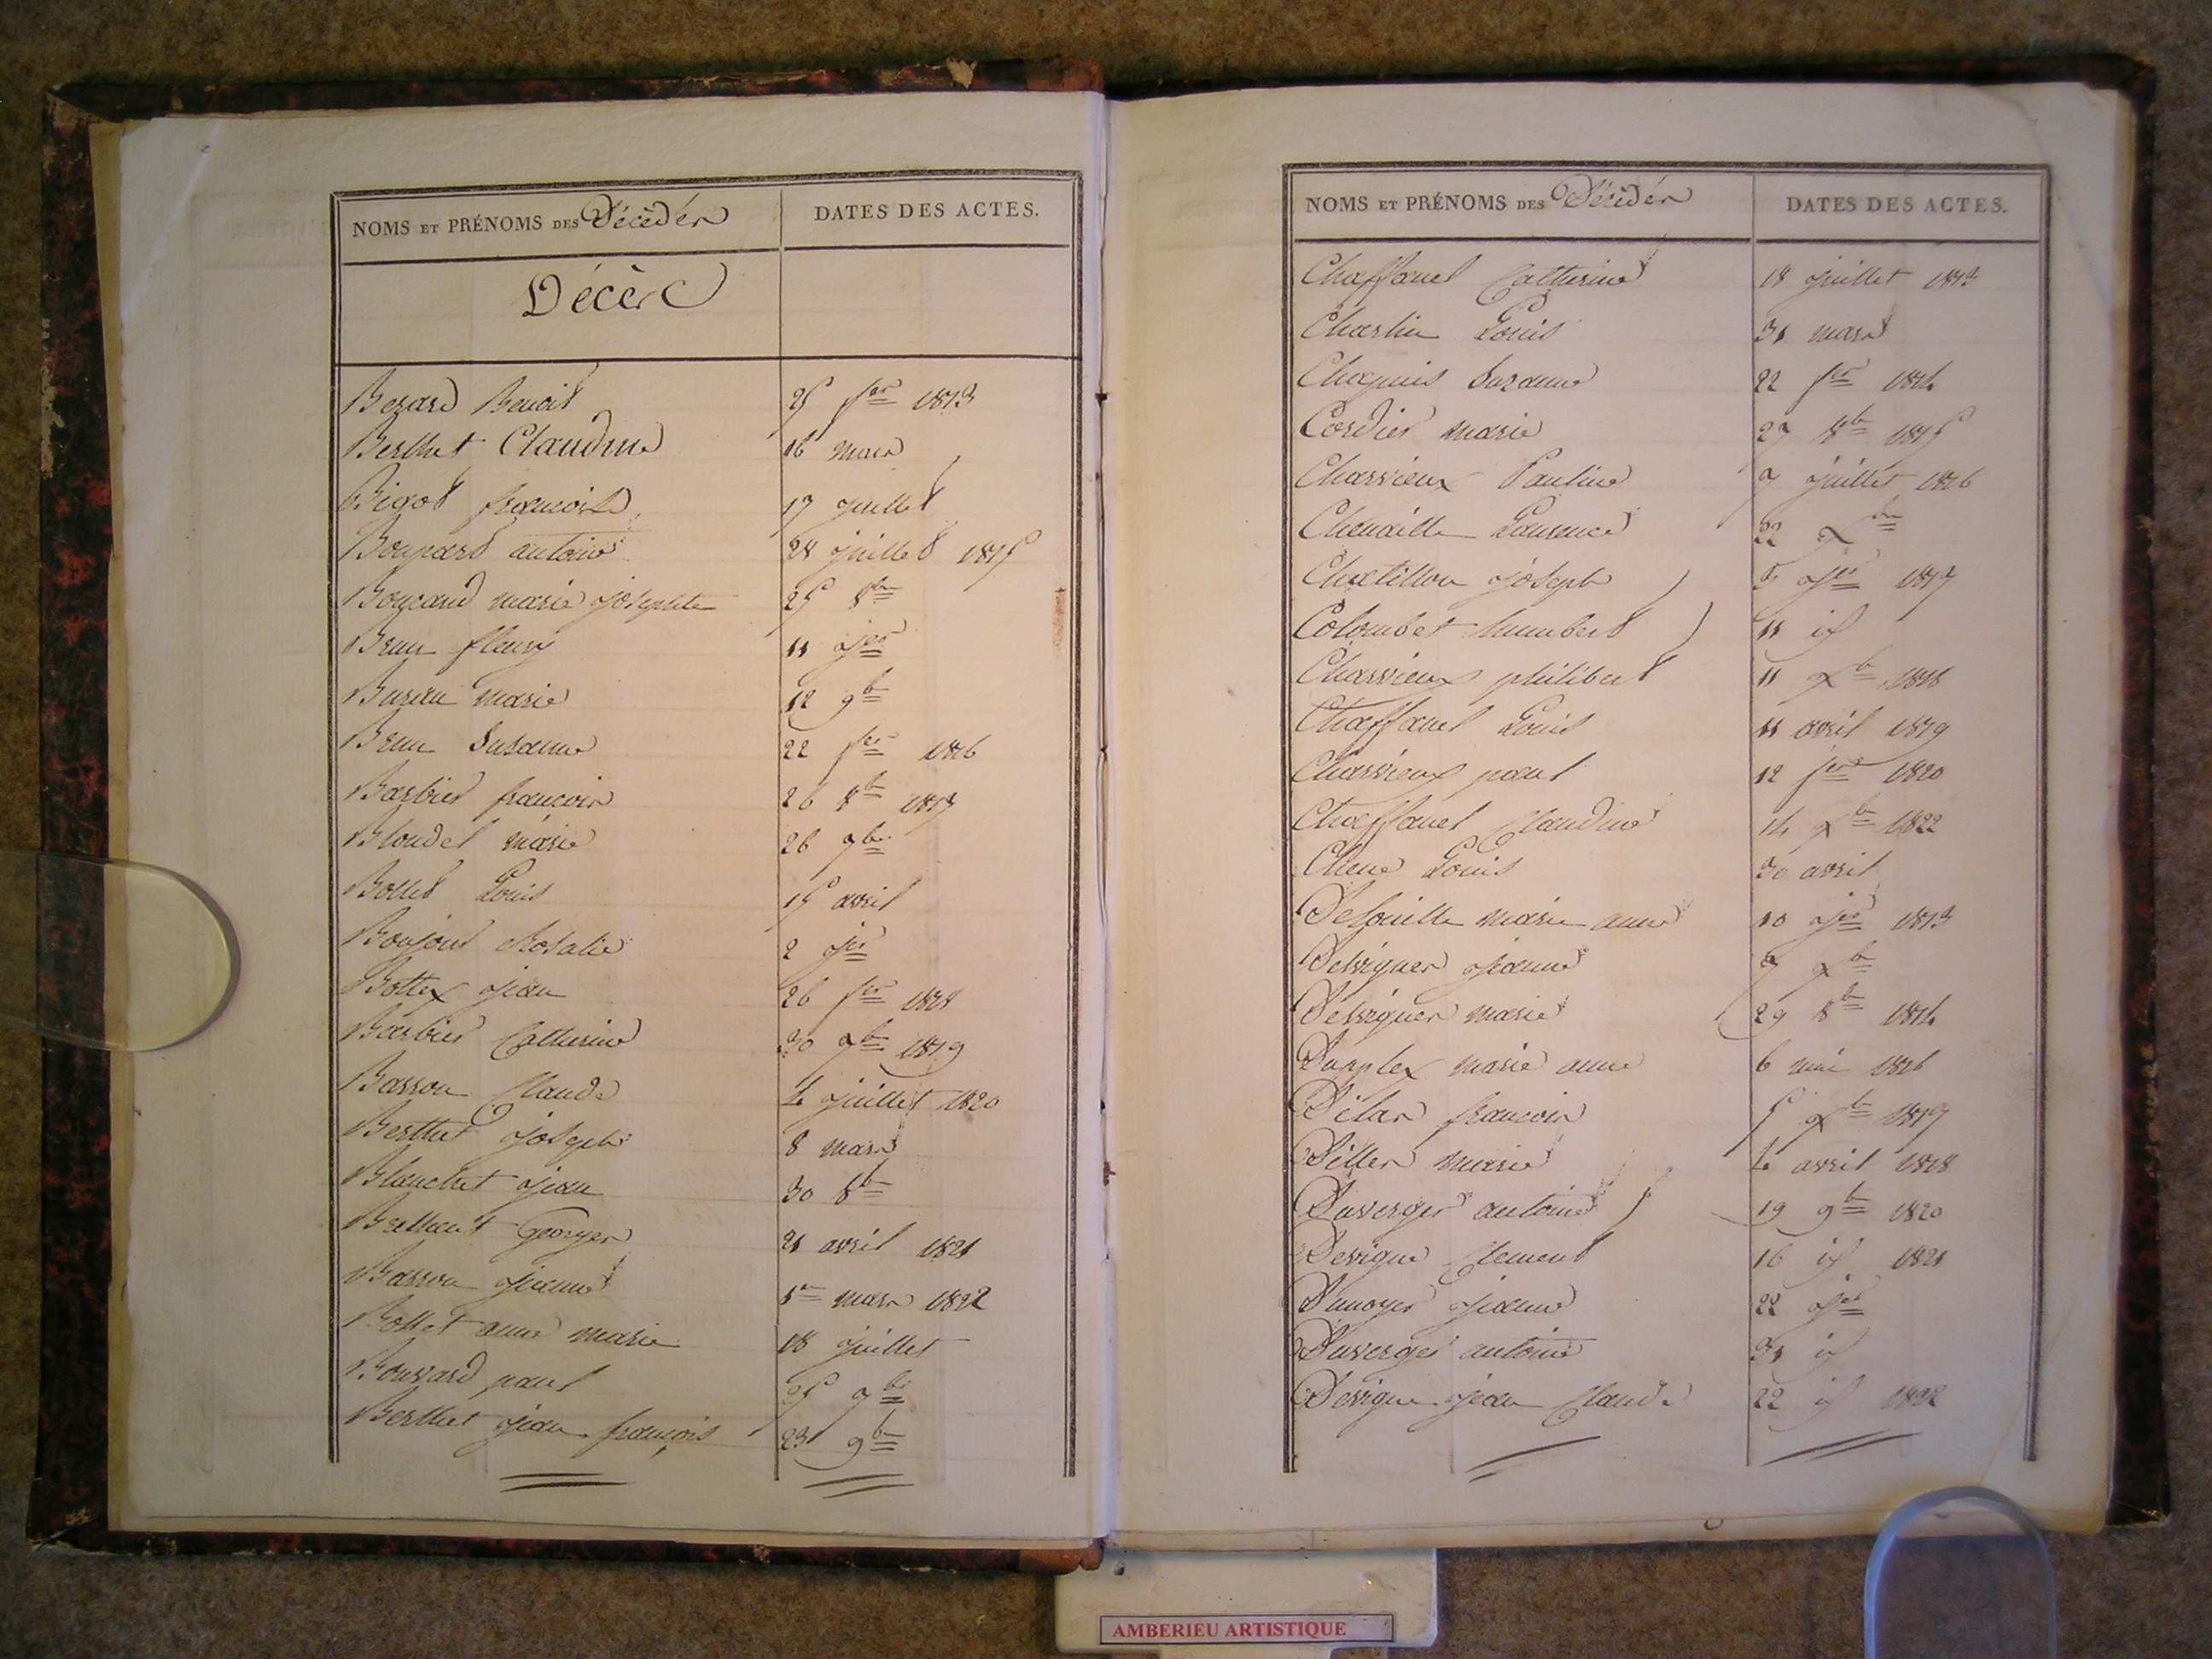 NOMS ET PRÉNOMS DES Décédés DATES DES ACTES.
Décès
Bezard Benoit 25 fer 1813
Berthet Claudine 16 mars
Bigot françois 17 juillet
Boupard antoine 28 juillet 1815
marie josephte 25 8bre
Brun fleury 11 jer
Bureau marie 12 9b
Brun Susanne 22 fer 1816
Barbier françois 26 8b 1817
Blondel marie 26 9bre
Bottet Louis 15 avril
Boujour Rosalie 2 jer
Bottex jean 26 fer 1818
Barbier Catherine 30 7b 1819
Basson Claude 4 juillet 1820
Berthet joseph 8 mars
Blanchet jean 30 8b
Georges 21 avril 1821
Basson jeanne 1er mars 1822
Bottet anne marie 18 juillet
Bouvard paul 25 7bre
Berthet jean françois 23 9bre
NOMS ET PRÉNOMS DES Décédés DATES DES ACTES.
Chaffanel Catherine 18 juillet 1813
Charlin Louis 31 mars
Chapuis Suzanne 22 fer 1814
Cordier marie 27 8bre 1815
Charvieux Pauline 7 juillet 1816
Chenaille Laurence 22 Xbre
Chatillon joseph 5 jer 1817
Colombet humbert 11 id
Charvieux philibert 11 Xb 1818
Chaffanel Louis 11 avril 1819
Charvieux paul 12 fer 1820
Chaffanel Claudine 14 Xb 1822
Chene Louis 30 avril
Delouille marie anne 10 jer 1813
Delvignes jeanne 7 Xb
Delvignes marie 29 8b 1814
Duplex marie anne 6 mai 1816
françois 5 Xb 1817
marie 4 avril 1818
Duverger antoine 19 9b 1820
Devigne Clement 16 id 1821
Dunoyer jeanne 22 jer
Duverger antoine 31 id
Devigne jean Claude 22 id 1822
AMBERIEU ARTISTIQUE